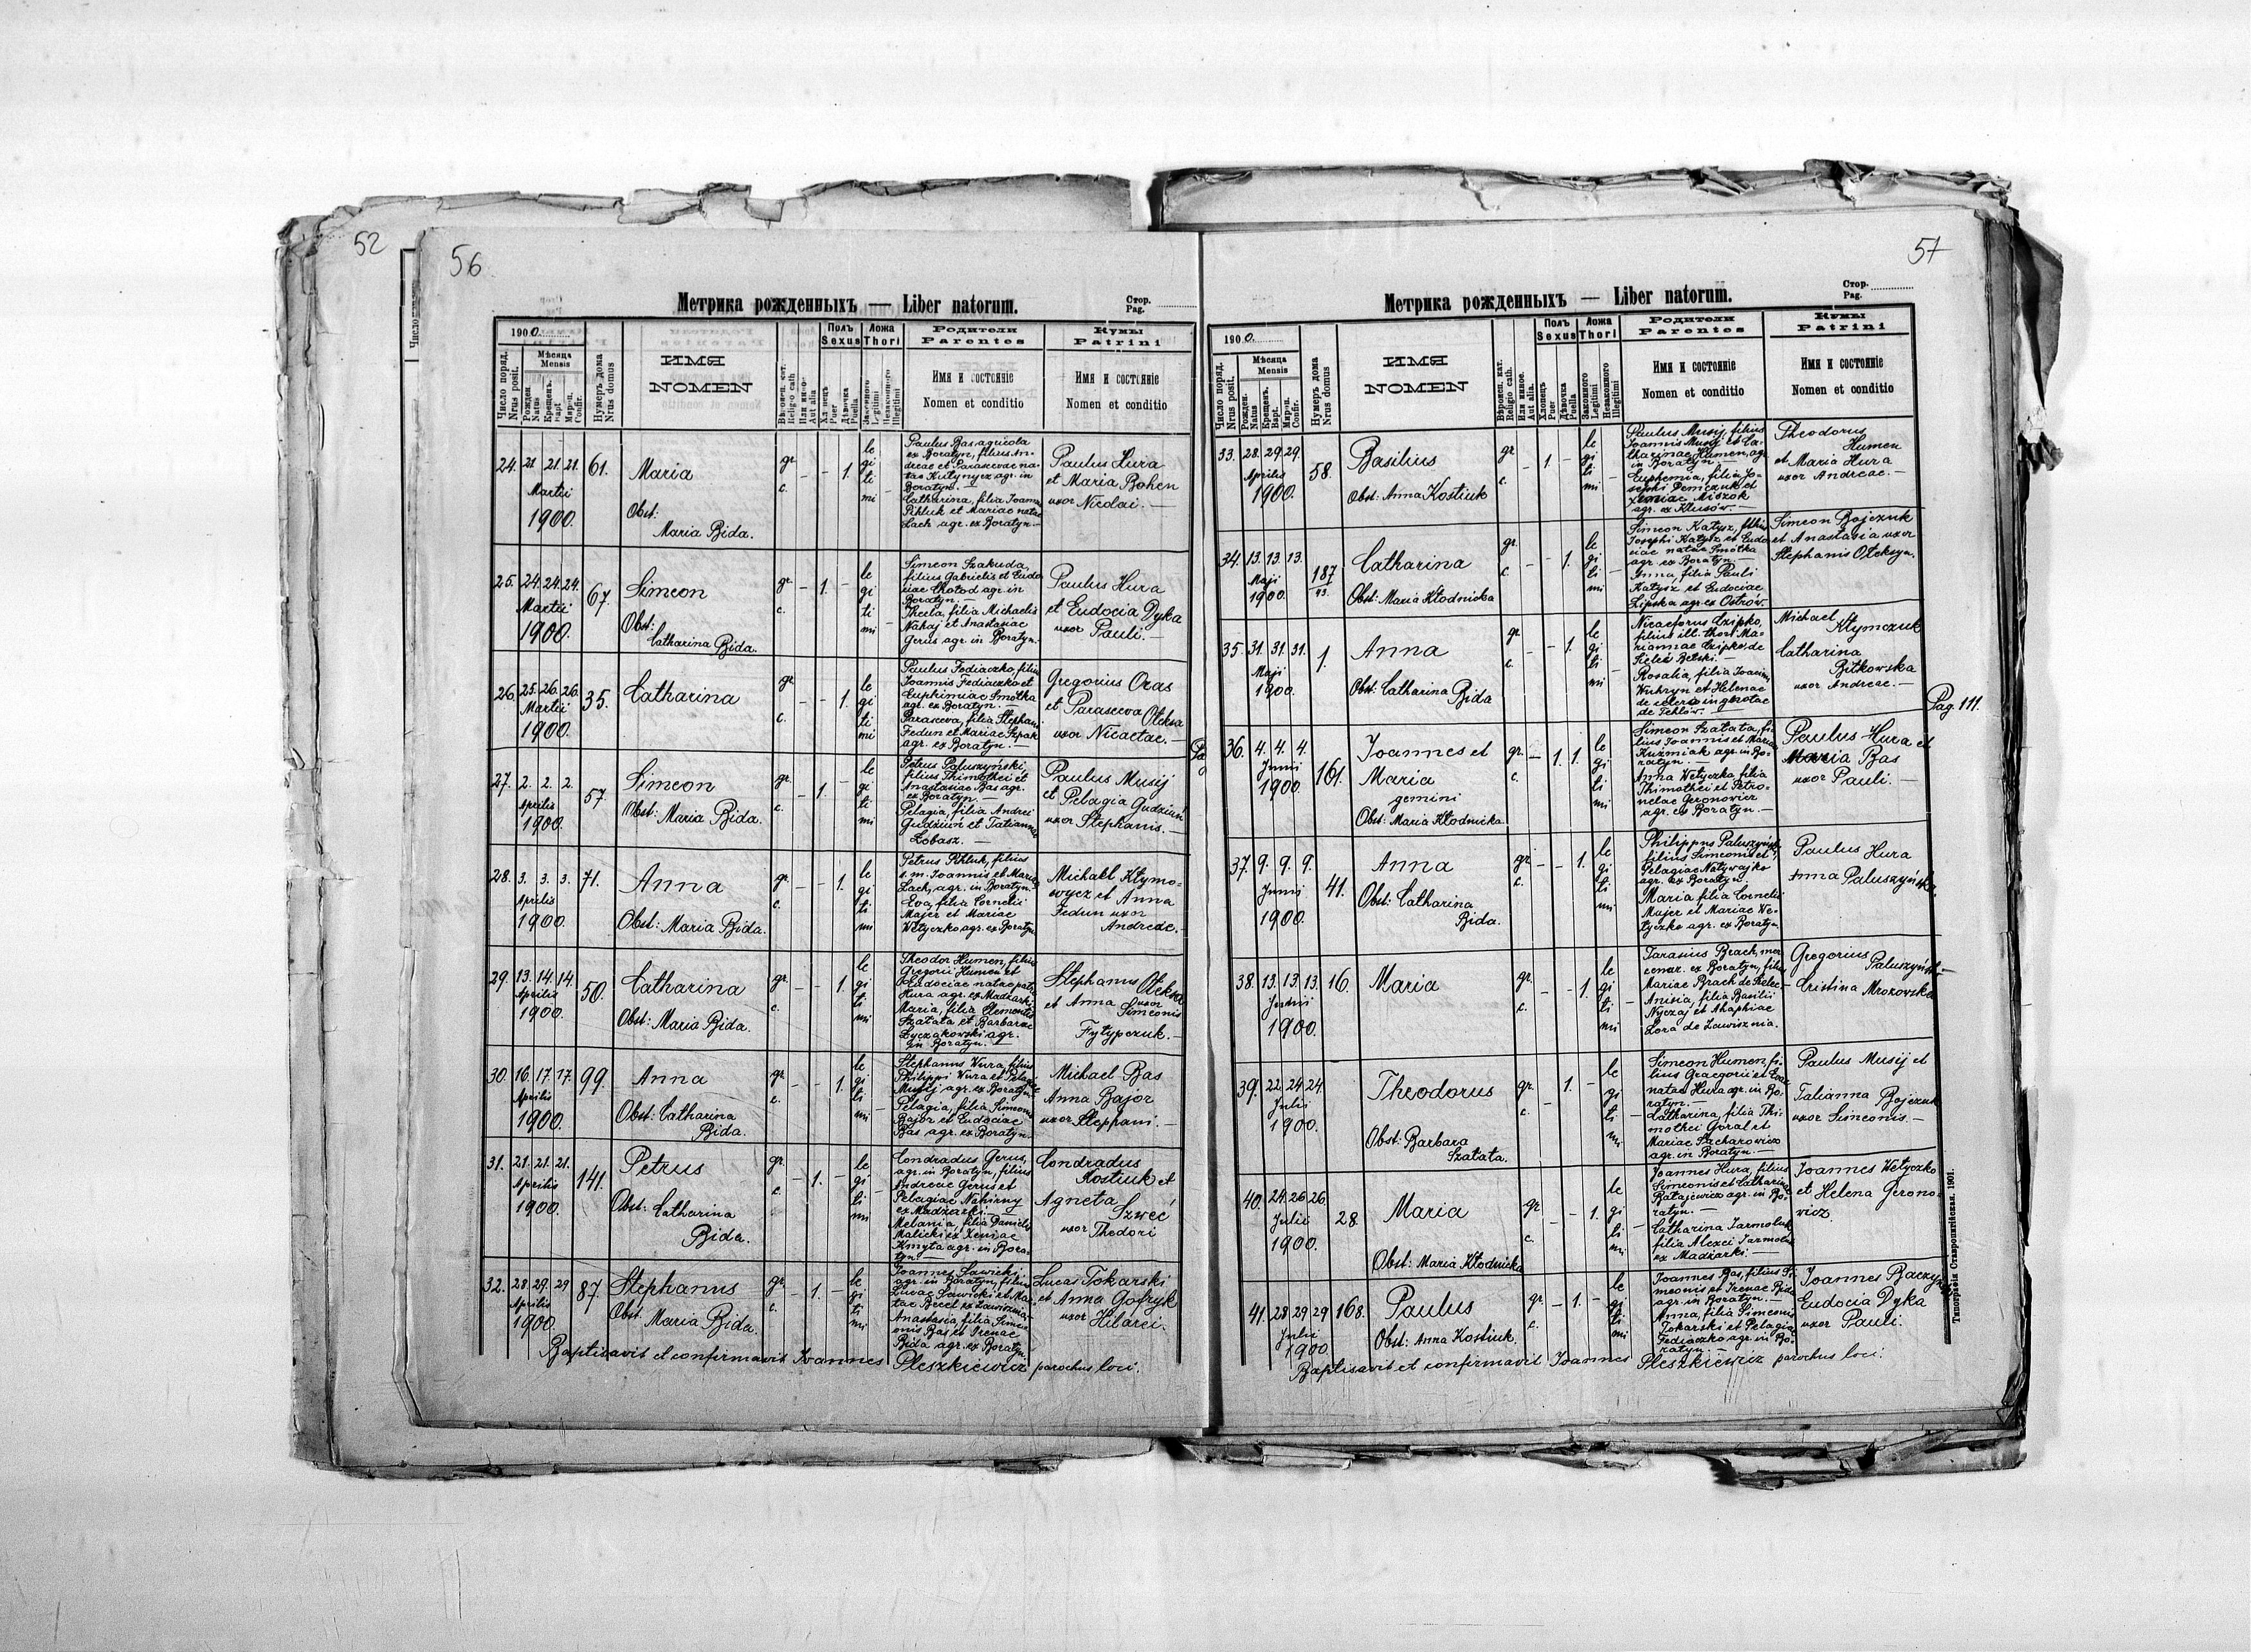 52
56
Метрика рожденныхъ — Liber natorum.
Стор.
Pag.
1900.
Число поряд.
Nrus posit.
Мѣсяца
Mensis
Рожден.
Natus
Крещенъ.
Bapt.
Мир-п.
Confir.
Нумеръ дома
Nrus domus
ИМЯ
NOMEN
Полъ
Sexus
Ложа
Thori
Родители
Parentes
Имя и состояніе
Nomen et conditio
Кумы
Patrini
Имя и состояніе
Nomen et conditio
24. 21. 21. 21. Martii 1900. 61.
Maria
Obst:
Maria Bida.
gr. c. – – 1. legitimi –
Paulus Bas agricola
ex Boratyn, filius An-
dreae et Parascevae na-
tae Kutynycz agr. in
Boratyn. —
Catharina, filia Joannis
Pihluk et Mariae natae
Lach agr. ex Boratyn —
Paulus Hura
et Maria Bohen
uxor Nicolai. —
25. 24. 24. 24. Martii 1900. 67.
Simeon
Obst:
Catharina Bida.
gr. c. – 1. – legitimi
Simeon Szakuda,
filius Gabrielis et Eudo-
ciae Chotod agr. in
Boratyn. —
Thecla, filia Michaelis
Nahaj et Anastasiae
Gerus agr. in Boratyn.
Paulus Hura
et Eudocia Dyka
uxor Pauli. —
26. 25. 26. 26. Martii 1900. 35.
Catharina
gr. c. – – 1. legitimi
Paulus Fediaczko, filius
Joannis Fediaczko et
Euphimiae Smotka
agr. ex Boratyn. —
Parasceva, filia Stephani
Fedun et Mariae Szpak
agr. ex Boratyn. —
Gregorius Oras
et Parasceva Oteksa
uxor Nicaetae. —
27. 2. 2. 2. Aprilis 1900. 57.
Simeon
Obst: Maria Bida.
gr. c. – 1. legitimi
Petrus Paluszyński,
filius Thimothei et
Anastasiae Bas agr.
ex Boratyn.
Pelagia, filia Andrei
Gudziun et Tatiannae
Łobasz. —
Paulus Musij
et Pelagia Gudziun
uxor Stephanis. —
28. 3. 3. 3. Aprilis 1900. 71.
Anna
Obst: Maria Bida.
gr. c. – – 1. legitimi
Petrus Pihluk, filius
s.m. Joannis et Mariae
Lach, agr. in Boratyn.
Eva, filia Cornelii
Majer et Mariae
Wetyczko agr. ex Boratyn
Michael Kłymo-
wycz et Anna
Fedun uxor
Andreae. —
29. 13. 14. 14. Aprilis 1900. 50.
Catharina
Obst: Maria Bida.
gr. c. – – 1. legitimi
Theodor Humen, filius
Gregorii Humen et
Eudociae natae
Hura agr. ex Madżarki
Maria, filia Clementis
Szatata et Barbarae
Łyczakowski agr.
in Boratyn. —
Stephanus Oteksa
et Anna uxor
Simeonis
Fytypczuk. —
30. 16. 17. 17. Aprilis 1900. 99.
Anna
Obst: Catharina
Bida.
gr. c. – – 1. legitimi
Stephanus Wura, filius
Philippi Wura et Pelagiae
Musij agr. ex Boratyn
Pelagia, filia Simeonis
Bajor et Eudociae
Bas agr. ex Boratyn.
Michael Bas
Anna Bajor
uxor Stephani. —
31. 21. 21. 21. Aprilis 1900. 141.
Petrus
Obst: Catharina
Bida.
gr. c. – 1. – legitimi –
Condradus Gerus,
agr. in Boratyn, filius
Andreae Gerus et
Pelagiae Nahirny
ex Madżarki. —
Melania, filia Danielis
Malicki et Xeniae
Kmyta agr. in Bora-
tyn —
Condradus
Kostiuk et
Agneta Szweć
uxor Thedori
32. 28. 29. 29 Aprilis 1900. 87.
Stephanus
Obst: Maria Bida.
gr. c. – 1. – legitimi
Joannes Sawicki
agr. in Boratyn, filius
Lucae Sawicki et Mar-
tae Becel ex Zawisznia.
Anastasia, filia Sime-
onis Bas et Irenae
Bida agr. ex Boratyn.
Lucas Tokarski
et Anna Gofryk
uxor Hilarei.
Baptisavit et confirmavit Joannes Pleszkiewicz parochus loci.
57
Метрика рожденныхъ — Liber natorum.
Стор.
Pag.
1900.
Число поряд.
Nrus posit.
Мѣсяца
Mensis
Рожден.
Natus
Крещенъ.
Bapt.
Мир-п.
Confir.
Нумеръ дома
Nrus domus
ИМЯ
NOMEN
Вѣроисп. кат.
Religio cath.
Или инное.
Aut alia.
Полъ
Sexus
Хлопецъ
Puer
Дѣвочка
Puella
Ложа
Thori
Законного
Legitimi
Незаконного
Illegitimi
Родители
Parentes
Имя и состояніе
Nomen et conditio
Кумы
Patrini
Имя и состояніе
Nomen et conditio
33. 28. 29. 29. Aprilis 1900. 58.
Basilius
Obst: Anna Kostiuk
gr. c. – 1 – legitimi
Paulus Musij, filius
Joannis Musij et Ca-
tharinae Humen, agr.
in Boratyn —
Euphemia, filia Jo-
sephi Demczuk et
Xeniae Miszok
agr. ex Kłusów. —
Theodorus
Humen
et Maria Hura
uxor Andreae. —
34. 13. 13. 13. Maji 1900. 187/93.
Catharina
Obst: Maria Kłodnicka
gr. c. – – 1. legitimi –
Simeon Katysz, filius
Josephi Katysz et Eudo-
ciae natae Smotka
agr. ex Boratyn —
Anna, filia Pauli
Katysz et Eudociae
Lipska agr. ex Ostrów.
Simeon Bojczuk
et Anastasia uxor
Stephanis Oteksyn.
35. 31. 31. 31. Maji 1900. 1.
Anna
Obst: Catharina Bida
gr. c. – – 1. legitimi –
Nicaeforus Czipko,
filius ill. thori Ma-
riannae Czipko, de
Sielec Bełski. —
Rosalia, filia Joannis
Wuhryn et Helenae
de Tehlów. —
Michael
Kłymczuk
Catharina
Bitkowska
uxor Andreae. —
Pag. 111.
36. 4. 4. 4. Junii 1900. 161.
Joannes et
Maria
gemini
Obst: Maria Kłodnicka.
gr. c. – 1. 1. legitimi
Simeon Szatata, fi-
lius Joannis et Mariae
Kuzmiak agr. in Bo-
ratyn. —
Anna Wetyczko filia
Thimothei et Petro-
nelae Geronowicz
agr. ex Boratyn —
Paulus Hura et
Maria Bas
uxor Pauli. —
37. 9. 9. 9. Junii 1900. 41.
Anna
Obst: Catharina
Bida.
gr. c. – – 1. legitimi
Philippus Paluszyński,
filius Simeonis et
Pelagiae Natywajko
agr. ex Boratyn.
Maria filia Cornelii
Majer et Mariae We-
tyczko agr. ex Boratyn
Paulus Hura
Anna Paluszyńska.
38. 13. 13. 13. Junii 1900. 16.
Maria
gr. c. – – 1. legitimi –
Tarasius Brach, mer-
cenar. ex Boratyn, filius
Mariae Brach de Sielec —
Anisia, filia Basilii
Nyczaj et Ahaphiae
Lora de Zawisznia.
Gregorius
Paluszyński —
Cristina Mrozowska
39. 22. 24. 24. Julii 1900.
Theodorus
Obst: Barbara
Szatata.
gr. c. – 1. – legitimi –
Simeon Humen, fi-
lius Graegorii et Evae
natae Hura agr. in Bo-
ratyn. —
Catharina, filia Thi-
mothei Goral et
Mariae Sacharowicz
agr. in Boratyn. —
Paulus Musij et
Tatianna Bojczuk
uxor Simeonis. —
40. 24. 26. 26. Julii 1900. 28.
Maria
Obst: Maria Kłodnicka
gr. c. – – 1. legitimi –
Joannes Hura, filius
Simeonis et Catharinae
Ratajewicz agr. in Bo-
ratyn. —
Catharina Jarmoluk
filia Alexei Jarmoluk
ex Madżarki. —
Joannes Wetyczko
et Helena Gerono-
wicz.
41. 28 29 29 Julii 1900. 168.
Paulus
Obst: Anna Kostiuk.
gr. c. – 1. – legitimi
Joannes Bas, filius Si-
meonis et Irenae Bida
agr. in Boratyn. —
Anna, filia Simeonis
Tokarski et Pelagiae
Fediaczko agr. in Bo-
ratyn —
Joannes Baczyński
Eudocia Dyka
uxor Pauli.
Baptisavit et confirmavit Joannes Pleszkiewicz parochus loci.
Типографія Ставропигійская. 1901.